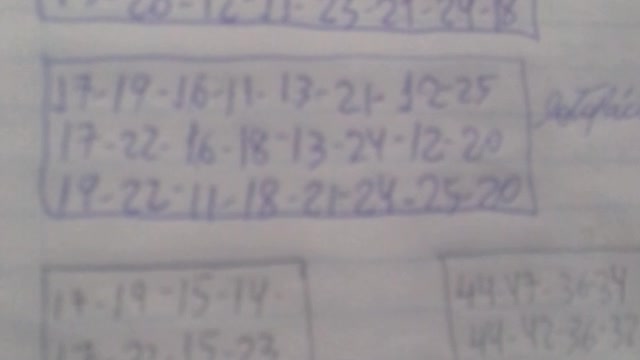 20-12-11-25-21-24-18
17-19-16-11-13-21-12-25
17-22-16-18-13-24-12-20
19-22-11-18-21-24-25-20
17-19-15-14-
44-47-36-34
17-22-15-23
44-42-36-32